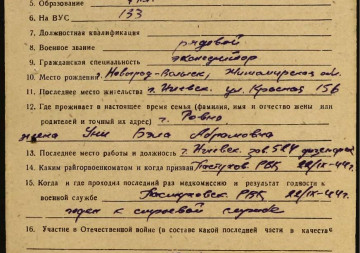 5. Образование
6. На ВУС 133
7. Должностная квалификация
8. Военное звание рядовой
9. Гражданская специальность
10. Место рождения г. Новоград-Волынск, Житомирская обл.
11. Последнее место жительства г. Ижевск. ул. Красная 156
12. Где проживает в настоящее время семья (фамилия, имя и отчество жены или
родителей и точный их адрес) г. Ровно
жена Бэла Абрамовна
13. Последнее место работы и должность г. Ижевск. зав. 524
14. Каким райгорвоенкоматом и когда призван РВК 22/IX-44г.
15. Когда и где проходил последний раз медкомиссию и результат годности к
военной службе РВК 22/IX-44г.
годен к строевой службе
16. Участие в Отечественной войне (в составе какой последней части в качестве